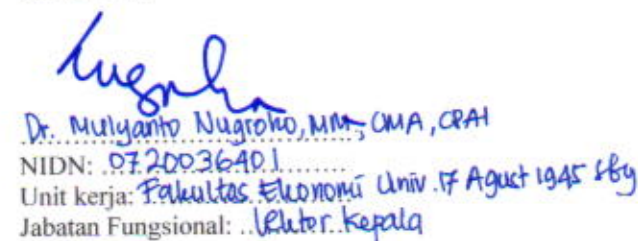 Dr. Mulyanto Nugroho, MM, CMA, CPAI
NIDN: 0720036401
Unit kerja: Fakultas Ekonomi Univ. 17 Agust 1945 Sby
Jabatan Fungsional: Lektor Kepala